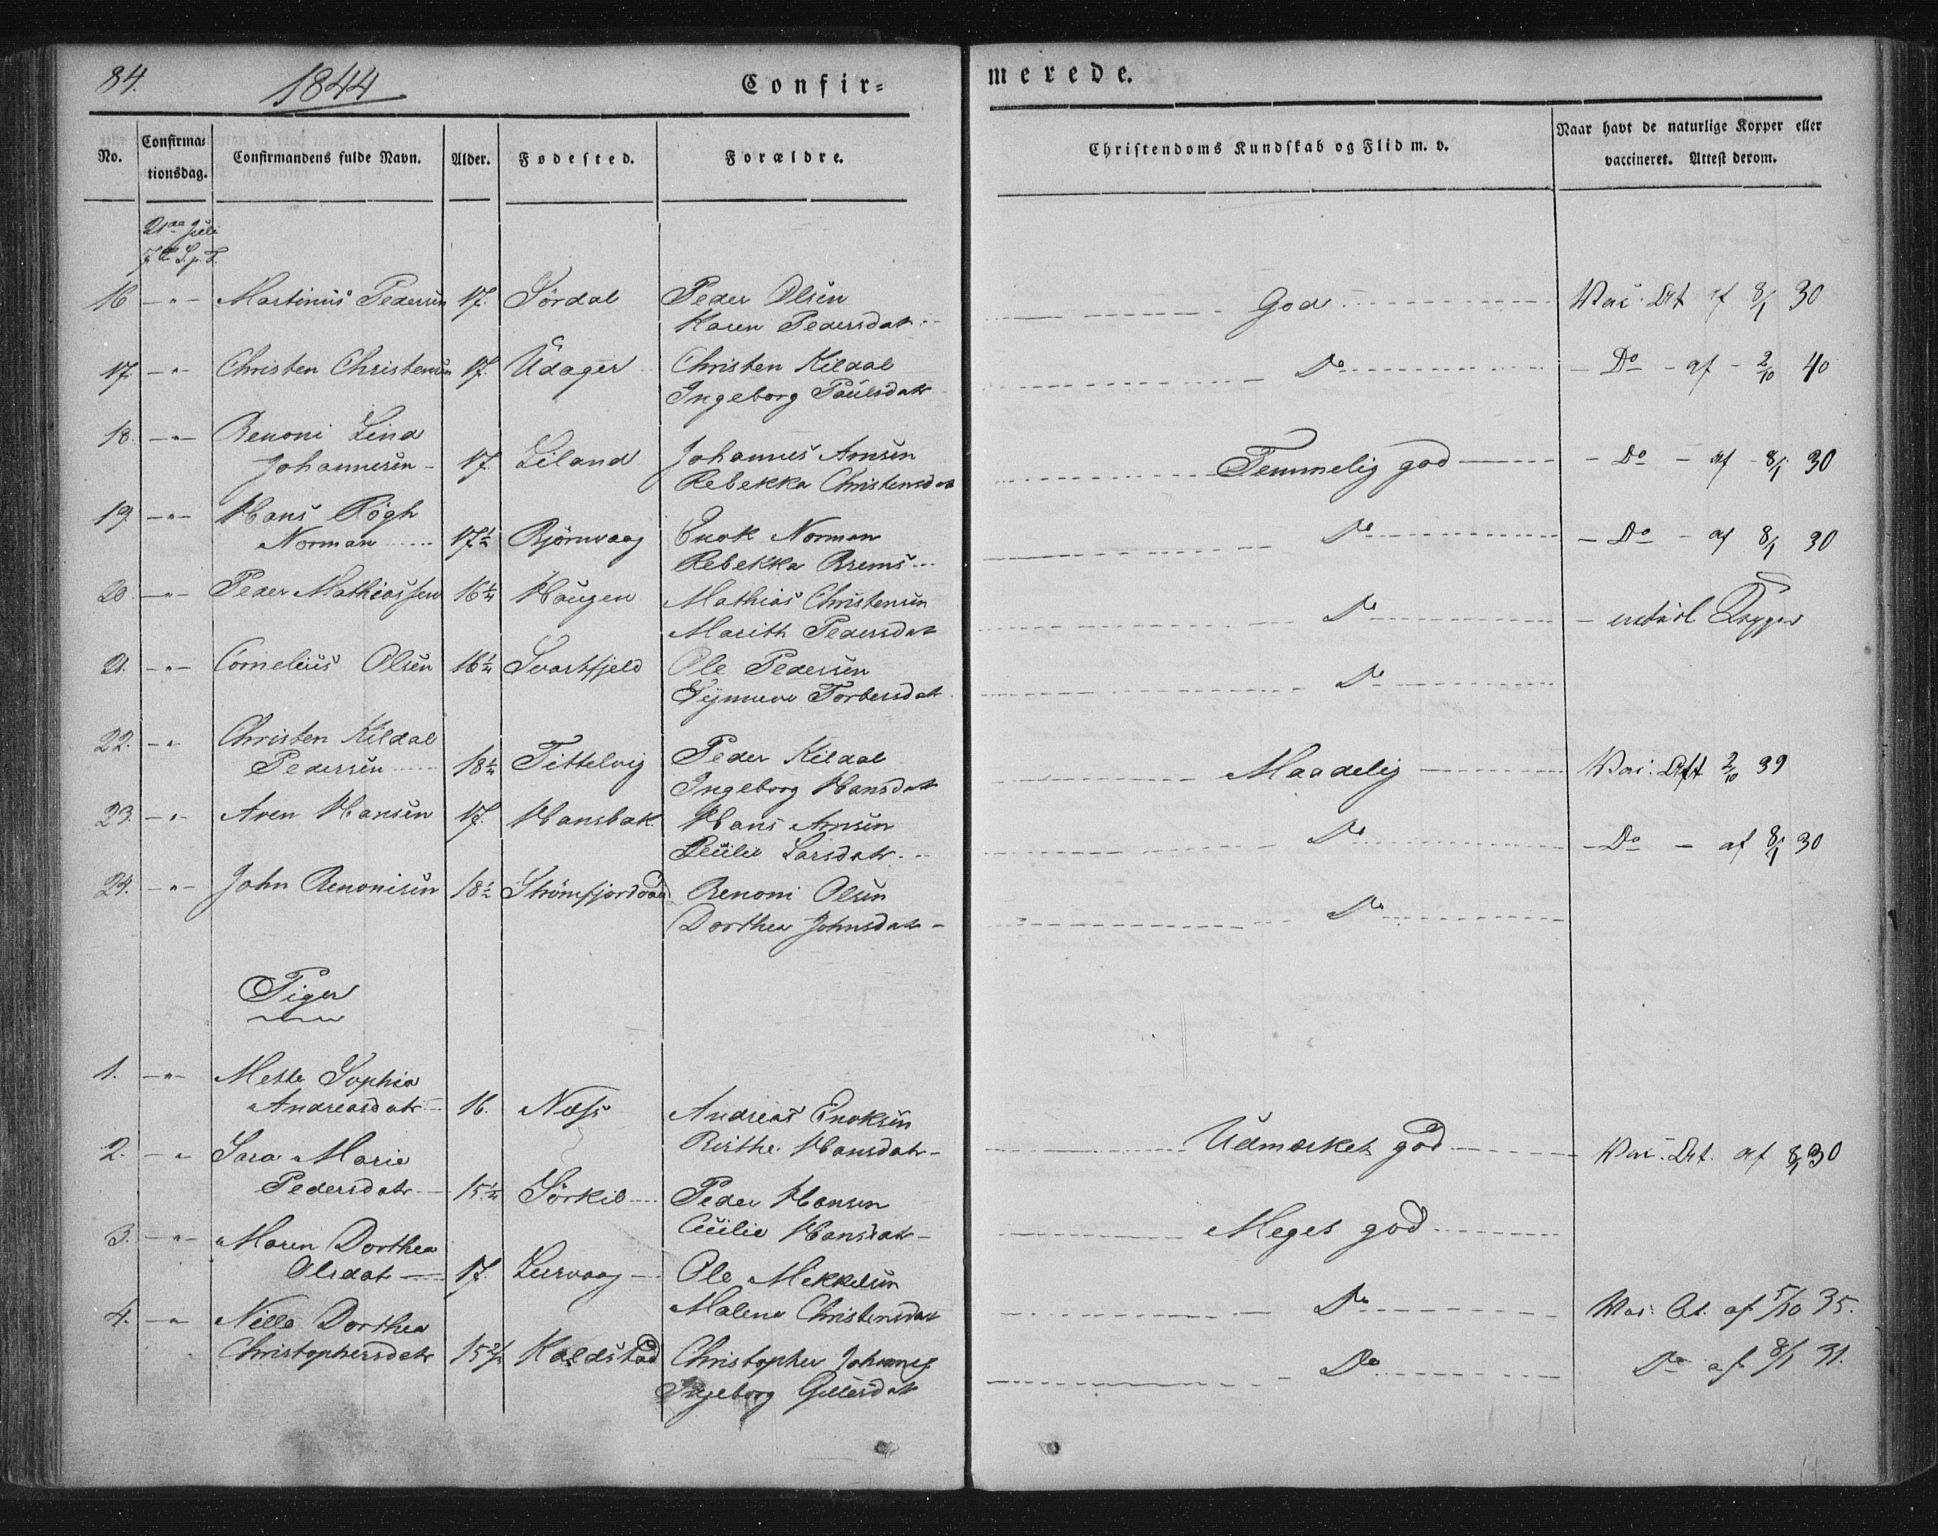 84. 1844 Confir= merede.
No. Confirma= tionsdag. Confirmandens fulde Navn. Alder. Fødested. Forældre. Christendoms Kundskab og Flid m. v. Naar havt de naturlige Kopper eller vaccineret. Attest derom.
21de Juli
7de S. p. T.
16 -"- Martinus Pedersen 17. Sørdal Peder Olsen God Vac. Att af 8/1 30
Karen Pedersdatr
17. -"- Christen Christensen 17. Udager Christen Kildal Do - Do - af - 2/10 40
Ingeborg Paulsdatr
18. -"- Benoni Lind
Johannesen 17. Liland Johannes Arnsen Temmelig god - Do - af 8/1 30
Rebekka Christensdatr
19 -"- Hans Røgh
Norman 17½ Bjørnvaag Enok Norman Do - Do - af 8/1 30
Rebekka Brems
20 -"- Peder Mathiassen 16¼ Haugen Mathias Christensen Do - naturl Kopper
Marith Pedersdat
21. -"- Cornelius Olsen 16¼ Svartfjeld Ole Pedersen Do
Torbersdat
22. -"- Christen Kildal
Pedersen 18¼ Tittelvig Peder Kildal Maadelig Vac. Att 2/10 39
Ingeborg Hansdat
23. -"- Aren Hansen 17. Hansbak Hans Arnsen Do - Do - af 8/1 30
Larsdatr.
24. -"- John Benonisen 18½ Strømfjordvaag Benoni Olsen Do
Dorthea Johnsdatr
Piger
1. -"- Mette Sophia
Andreasdatr 16. Næss Andreas Enoksen Udmærket god Vac. Att. af 8/1 30
Birthe Hansdatr
2. -"- Sara Marie
Pedersdatr 15¼ Sørkil Peder Hansen Meget god
Cecilie Hansdatr
3. -"- Maren Dorthea
Olsdat 17. Leervaag Ole Mikkelsen Do Vac. At. af 5/10 35.
Malene Christensdat
4. -"- Nille Dorthea
Christophersdatr 15 Koldstad Christopher Johannes Do Do af 8/1 31.
Ingeborg